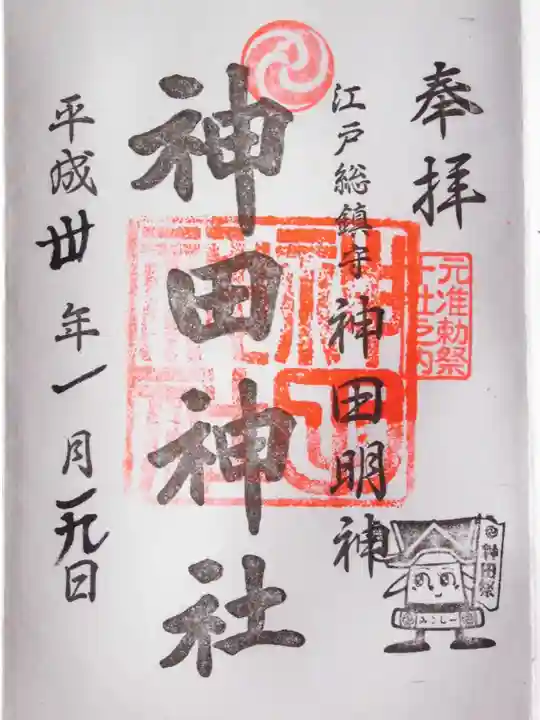 奉拝
元准勅祭
十社之内
江戸総鎮守 神田明神
神田神社
平成卅年一月一九日
神田祭
みこしー